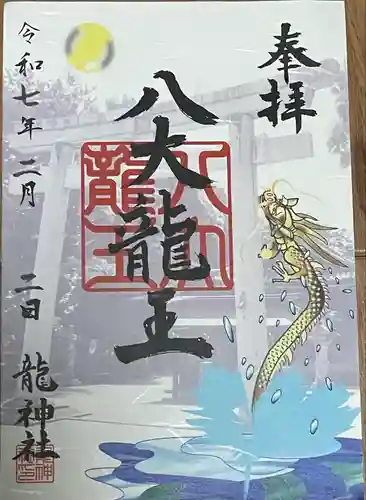 奉拝
八大龍王
八大龍王
令和七年二月二日
龍神社